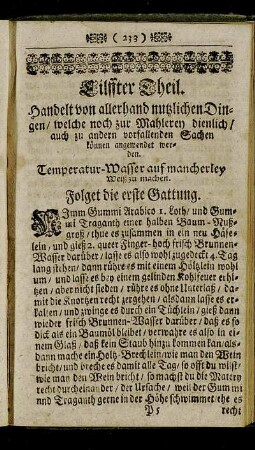 ( 233 )
Eilffter Theil.
Handelt von allerhand nutzlichen Din-
gen/ welche noch zur Mahlerey dienlich/
auch zu andern vorfallenden Sachen
können angewendet wer-
den.
Temperatur-Wasser auf mancherley
Weiß zu machen.
Folget die erste Gattung.
Nimm Gummi Arabico 1. Loth/ und Gum-
mi Traganth einer halben Baum-Nuß-
groß/ thue es zusammen in ein neu Häfe-
lein/ und gieß 2. queer Finger-hoch frisch Brunnen-
Wasser darüber/ lasse es also wohl zugedeckt 4. Tag
lang stehen/ dann rühre es mit einem Höltzlein wohl
um/ und lasse es bey einem gelinden Kohlfeuer erhi-
tzen/ aber nicht sieden/ rühre es ohne Unterlaß/ da-
mit die Knortzen recht zergehen/ alsdann lasse es er-
kalten/ und zwinge es durch ein Tüchlein/ gieß dann
wieder frisch Brunnen-Wasser darüber/ daß es so
dick als ein Baumöl bleibe/ verwahre es also in ei-
nem Glaß/ daß kein Staub hinzu kommen kan/ als-
dann mache ein Holtz-Brechlein/ wie man den Wein
bricht/ und breche es damit alle Tag/ so offt du wilst/
wie man den Wein bricht/ so machst du die Matery
recht durcheinander/ der Ursache/ weil der Gummi
und Traganth gerne in der Höhe schwimmet/ ehe es
P 5 recht